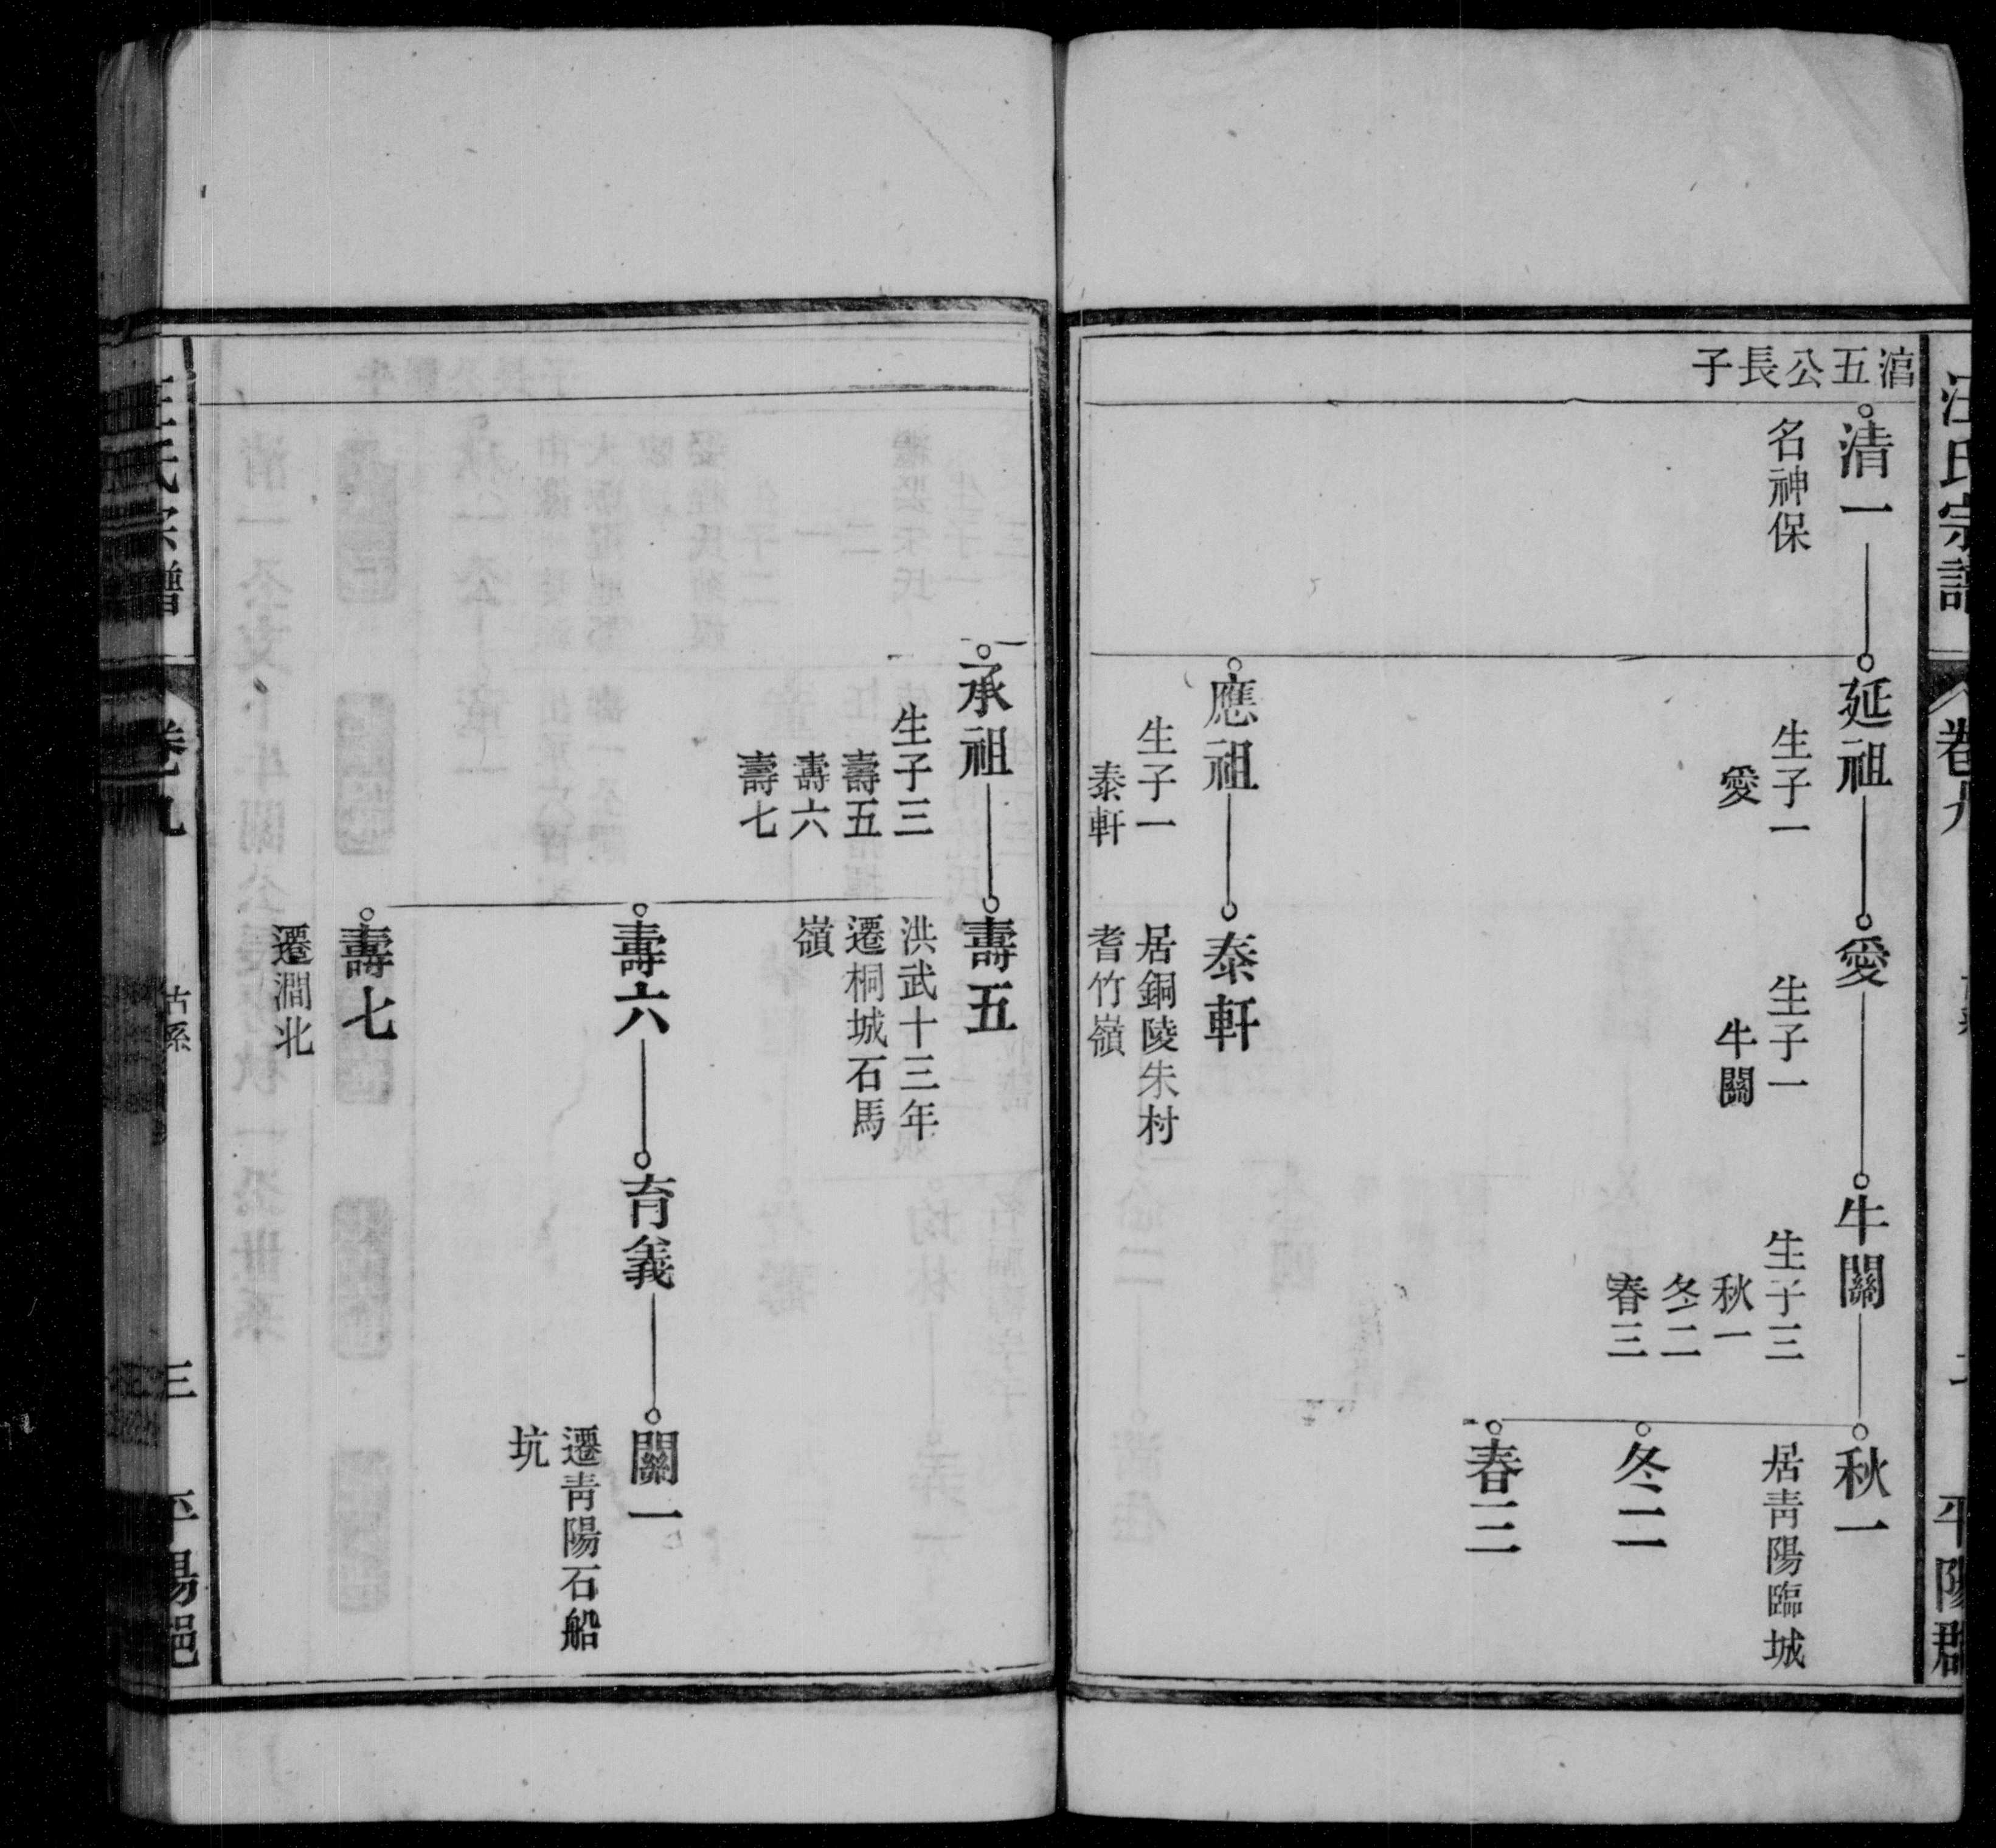 汪氏宗譜
卷九
平陽郡
涫五公長子
清一
名神保
延祖
生子一
愛
愛
生子一
牛關
牛關
生子三
秋一
冬二
春三
秋一
居青陽臨城
冬二
春三
應祖
生子一
泰軒
泰軒
居銅陵朱村
耆竹嶺
承祖
生子三
壽五
壽六
壽七
壽五
洪武十三年
遷桐城石馬
嶺
壽六
育義
關一
遷青陽石船
坑
壽七
遷澗北
汪氏宗譜
卷九
三
平陽